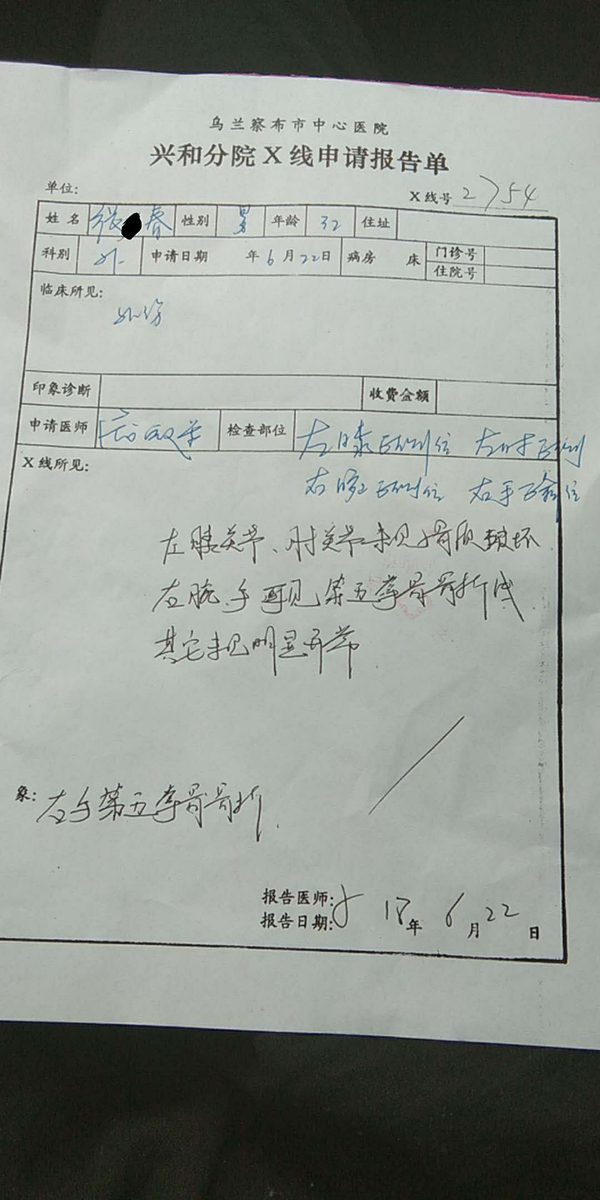 乌兰察布市中心医院
兴和分院X线申请报告单
单位: X线号 2754
姓名 春 性别 男 年龄 32 住址
科别 外 申请日期 年6月22日 病房 床 门诊号
住院号
临床所见:
外伤
印象诊断 收费金额
申请医师 检查部位 左膝正侧位 左肘正侧
右腕正侧位 右手正斜位
X线所见:
左膝关节、肘关节未见骨质破坏
右腕、手可见第五掌骨骨折线
其它未见明显异常
象: 右手第五掌骨骨折.
报告医师:
报告日期: 18年6月22日